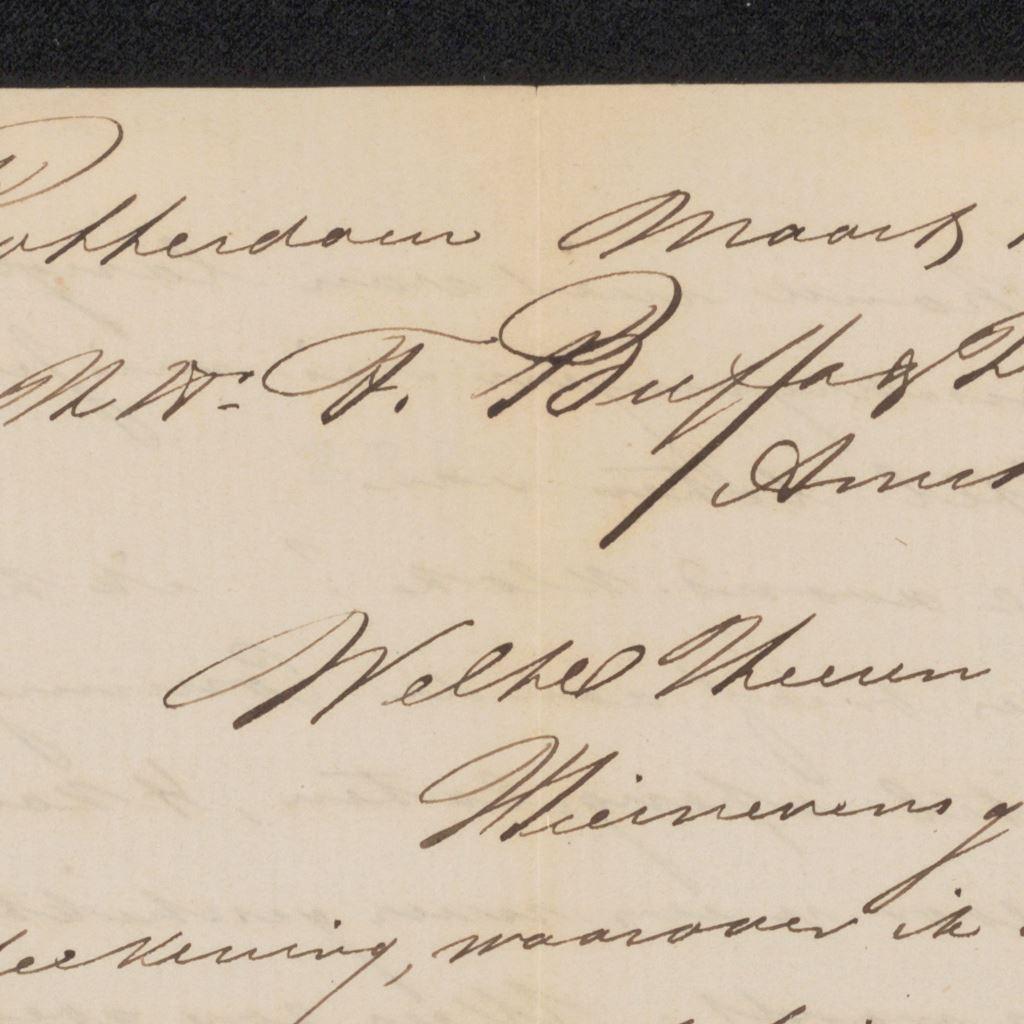 Rotterdam Maart
M Wn. F. Buffa &
Amst
WelEd Heeren
Hiernevens g
teekening, waarover ik